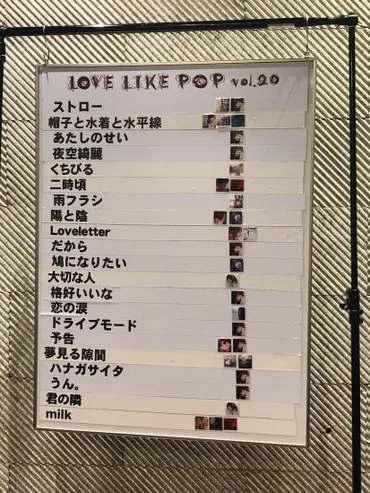 LOVE LIKE POP vol.20
ストロー
帽子と水着と水平線
あたしのせい
夜空綺麗
くちびる
二時頃
雨フラシ
陽と陰
Loveletter
だから
鳩になりたい
大切な人
格好いいな
恋の涙
ドライブモード
予告
夢見る隙間
ハナガサイタ
うん。
君の隣
milk